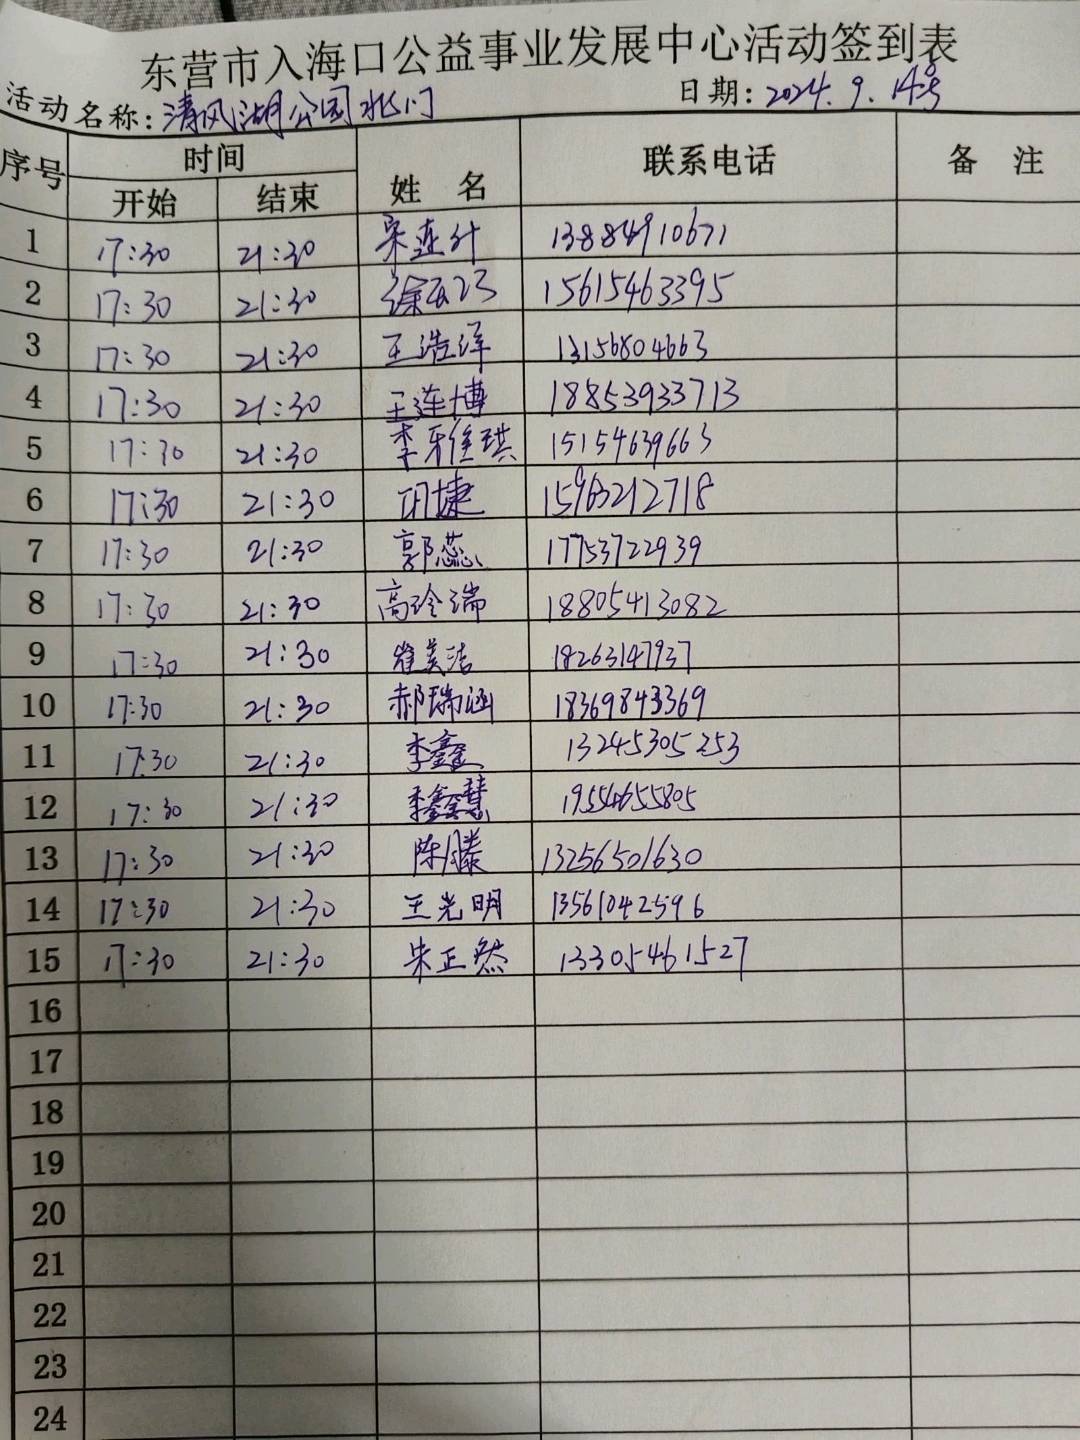 东营市入海口公益事业发展中心活动签到表
活动名称:清风湖公园北门 日期:2024.9.14号
序号 时间 姓名 联系电话 备注
开始 结束
1 17:30 21:30 13884910671
2 17:30 21:30 15615463395
3 17:30 21:30 王浩洋 13156804663
4 17:30 21:30 王连博 18853933713
5 17:30 21:30 李雅琪 15154639663
6 17:30 21:30 巩捷 15963212718
7 17:30 21:30 郭蕊 17753722939
8 17:30 21:30 高玲瑞 18805413082
9 17:30 21:30 崔美洁 18263147937
10 17:30 21:30 郝瑞涵 18369843369
11 17:30 21:30 李鑫 13245305253
12 17:30 21:30 李鑫慧 19554655805
13 17:30 21:30 陈滕 13256501630
14 17:30 21:30 王光明 13561042596
15 17:30 21:30 朱正然 13305461527
16
17
18
19
20
21
22
23
24